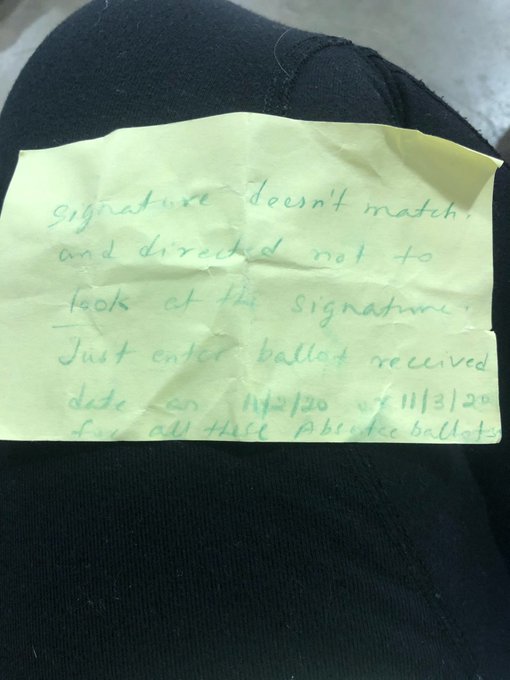 signature doesn't match.
and directed not to
look at the signature.
Just enter ballot received
date as 11/2/20 or 11/3/20
for all these Absentee ballots